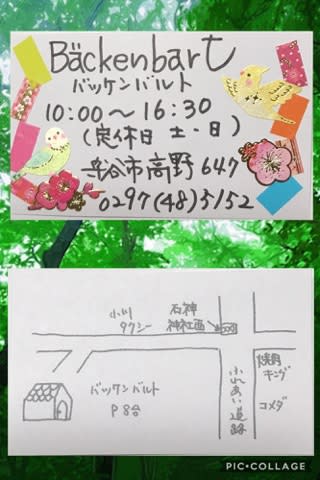 Bäckenbart
バッケンバルト
10:00〜16:30
(定休日 土・日)
守谷市高野647
0297(48)3152
小川
タクシー
石神
神社西
ふれあい道路
焼肉
キング
コメダ
バッケンバルト
P8台
PIC•COLLAGE